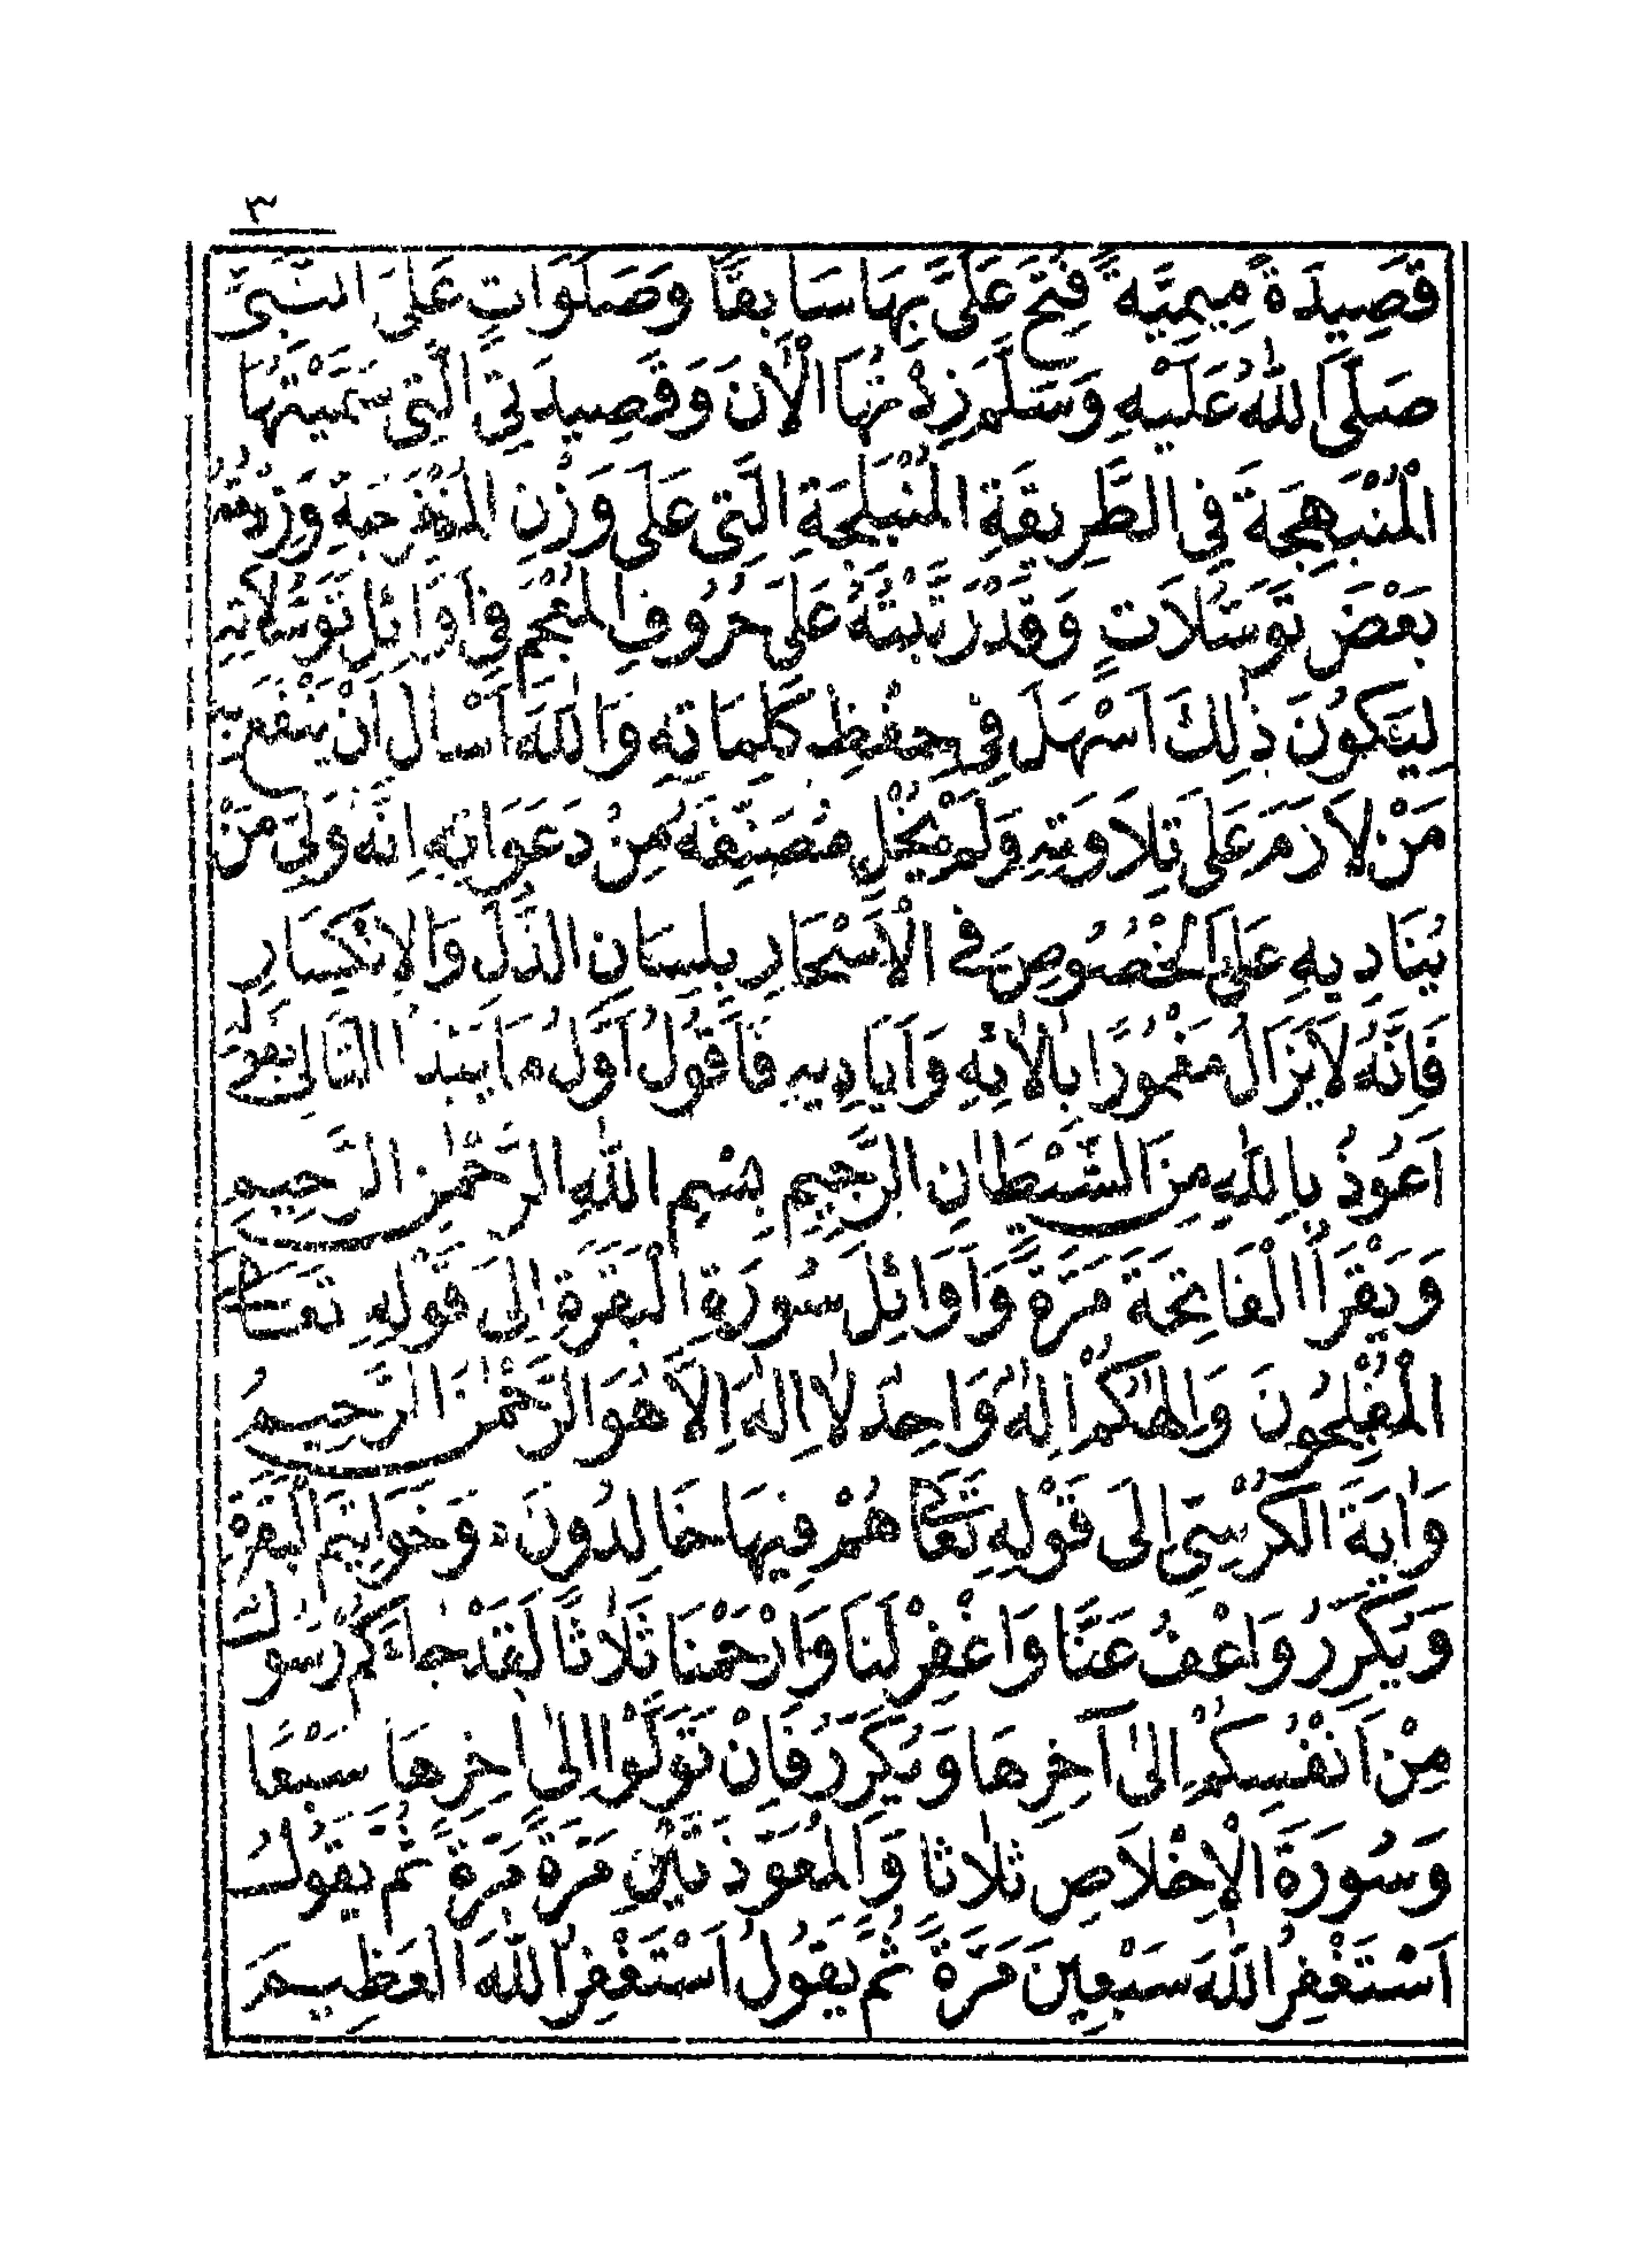 ٣
قَصِيدَةً مِيمِيَّةً فُتِحَ عَلَىَّ بِهَا سَابِقًا وَصَلَوَاتٍ عَلَى النَّبِىِّ
صَلَّى اللهُ عَلَيْهِ وَسَلَّمَ زِدْتُهَا الْاٰنَ وَقَصِيدَتِي الَّتِي سَمَّيْتُهَا
الْمُنْبَهِجَةَ فِي الطَّرِيقَةِ الْمُنْبَلِجَةِ الَّتِى عَلَى وَزْنِ الْمُنْفَرِجَةِ وَزِدْتُهُ
بَعْضَ تَوَسُّلَاتٍ وَقَدْ رَتَّبْتُهُ عَلَى حُرُوفِ الْمُعْجَمِ فِي اَوَائِلِ تَوَسُّلَاتِهِ
لِيَكُونَ ذٰلِكَ اَسْهَلَ فِي حِفْظِ كَلِمَاتِهِ وَاللهَ اَسْاَلُ اَنْ يَنْفَعَ بِهِ
مَنْ لَازَمَ عَلَى تِلَاوَتِهِ وَلَمْ يُخْلِ مُصَنِّفَهُ مِنْ دَعَوَاتِهِ اِنَّهُ وَلِىُّ مَنْ
يُنَادِيهِ عَلَى الْخُصُوصِ فِى الْاَسْحَارِ بِلِسَانِ الذُّلِّ وَالْاِنْكِسَارِ
فَاِنَّهُ لَايَزَالُ مَغْمُورًا بِاٰلَائِهِ وَاَيَادِيهِ فَاَقُولُ اَوَّلُ مَا يَبْتَدَأُ التَّالِى بِقَوْلِهِ
اَعُوذُ بِاللهِ مِنَ الشَّيْطَانِ الرَّجِيمِ بِسْمِ اللهِ الرَّحْمٰنِ الرَّحِيمِ
وَيَقْرَأُ الْفَاتِحَةَ مَرَّةً وَاَوَائِلَ سُورَةِ الْبَقَرَةِ اِلَى قَوْلِهِ تَعَالَى
الْمُفْلِحُونَ وَاِلٰهُكُمْ اِلٰهٌ وَاحِدٌ لَا اِلٰهَ اِلَّا هُوَ الرَّحْمٰنُ الرَّحِيمُ
وَاٰيَةَ الْكُرْسِىِّ اِلَى قَوْلِهِ تَعَالَى هُمْ فِيهَا خَالِدُونَ وَخَوَاتِيمَ الْبَقَرَةِ
وَيُكَرِّرُ وَاعْفُ عَنَّا وَاغْفِرْ لَنَا وَارْحَمْنَا ثَلَاثًا لَقَدْ جَاءَكُمْ رَسُولٌ
مِنْ اَنْفُسِكُمْ اِلٰى آخِرِهَا وَيُكَرِّرُ فَاِنْ تَوَلَّوْا اِلٰى اٰخِرِهَا سَبْعًا
وَسُورَةَ الْاِخْلَاصِ ثَلَاثًا وَالْمُعَوِّذَتَيْنِ مَرَّةً مَرَّةً ثُمَّ يَقُولُ
اَسْتَغْفِرُ اللهَ سَبْعِينَ مَرَّةً ثُمَّ يَقُولُ اَسْتَغْفِرُ اللهَ الْعَظِيمَ